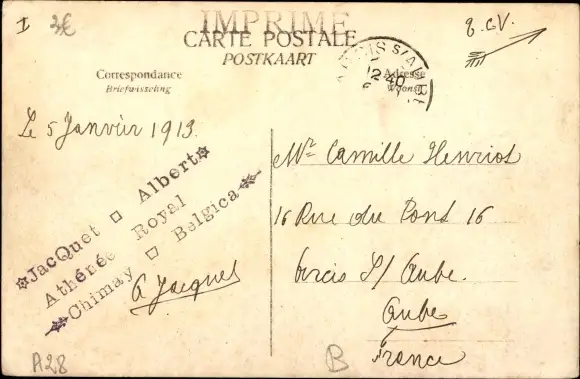 I
3€
IMPRIMÉ
CARTE POSTALE
POSTKAART
ARCIS S/AUBE
12 40
8. GV.
Correspondance
Briefwisseling
Adresse
Woonst
Le 5 Janvier 1913.
JacQuet □ Albert
Athénée Royal
Chimay □ Belgica
A Jacquet
Mr Camille Henriot
16 Rue du Pont 16
Arcis S/ Aube.
Aube
France
A28
B